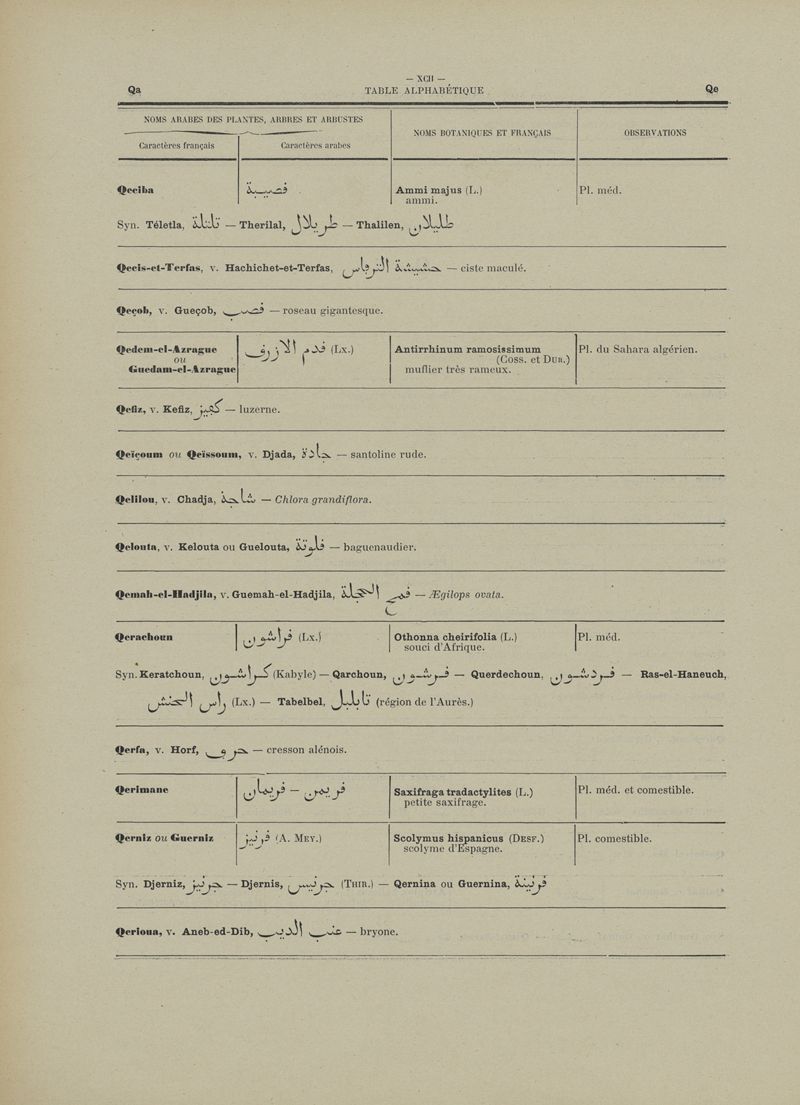 — XCII —
Qa TABLE ALPHABÉTIQUE Qe
NOMS ARABES DES PLANTES, ARBRES ET ARBUSTES
NOMS BOTANIQUES ET FRANÇAIS OBSERVATIONS
Caractères français Caractères arabes
Qeciba Ammi majus (L.) Pl. méd.
ammi.
Syn. Téletla, — Therilal, — Thalilen,
Qecis-et-Terfas, v. Hachichet-et-Terfas, — ciste maculé.
Qeçob, v. Gueçob, — roseau gigantesque.
Qedem-el-Azrague (Lx.) Antirrhinum ramosissimum Pl. du Sahara algérien.
ou (Coss. et Dur.)
Guedam-el-Azrague muflier très rameux.
Qefiz, v. Kefiz, — luzerne.
Qeïçoum ou Qeïssoum, v. Djada, — santoline rude.
Qelilou, v. Chadja, — Chlora grandiflora.
Qelouta, v. Kelouta ou Guelouta, — baguenaudier.
Qemah-el-Hadjila, v. Guemah-el-Hadjila, — Ægilops ovata.
Qerachoun (Lx.) Othonna cheirifolia (L.) Pl. méd.
souci d'Afrique.
Syn. Keratchoun, (Kabyle) — Qarchoun, — Querdechoun, — Ras-el-Haneuch,
(Lx.) — Tabelbel, (région de l'Aurès.)
Qerfa, v. Horf, — cresson alénois.
Qerimane Saxifraga tradactylites (L.) Pl. méd. et comestible.
petite saxifrage.
Qerniz ou Guerniz (A. Mey.) Scolymus hispanicus (Desf.) Pl. comestible.
scolyme d'Espagne.
Syn. Djerniz, — Djernis, (Thir.) — Qernina ou Guernina,
Qerioua, v. Aneb-ed-Dib, — bryone.